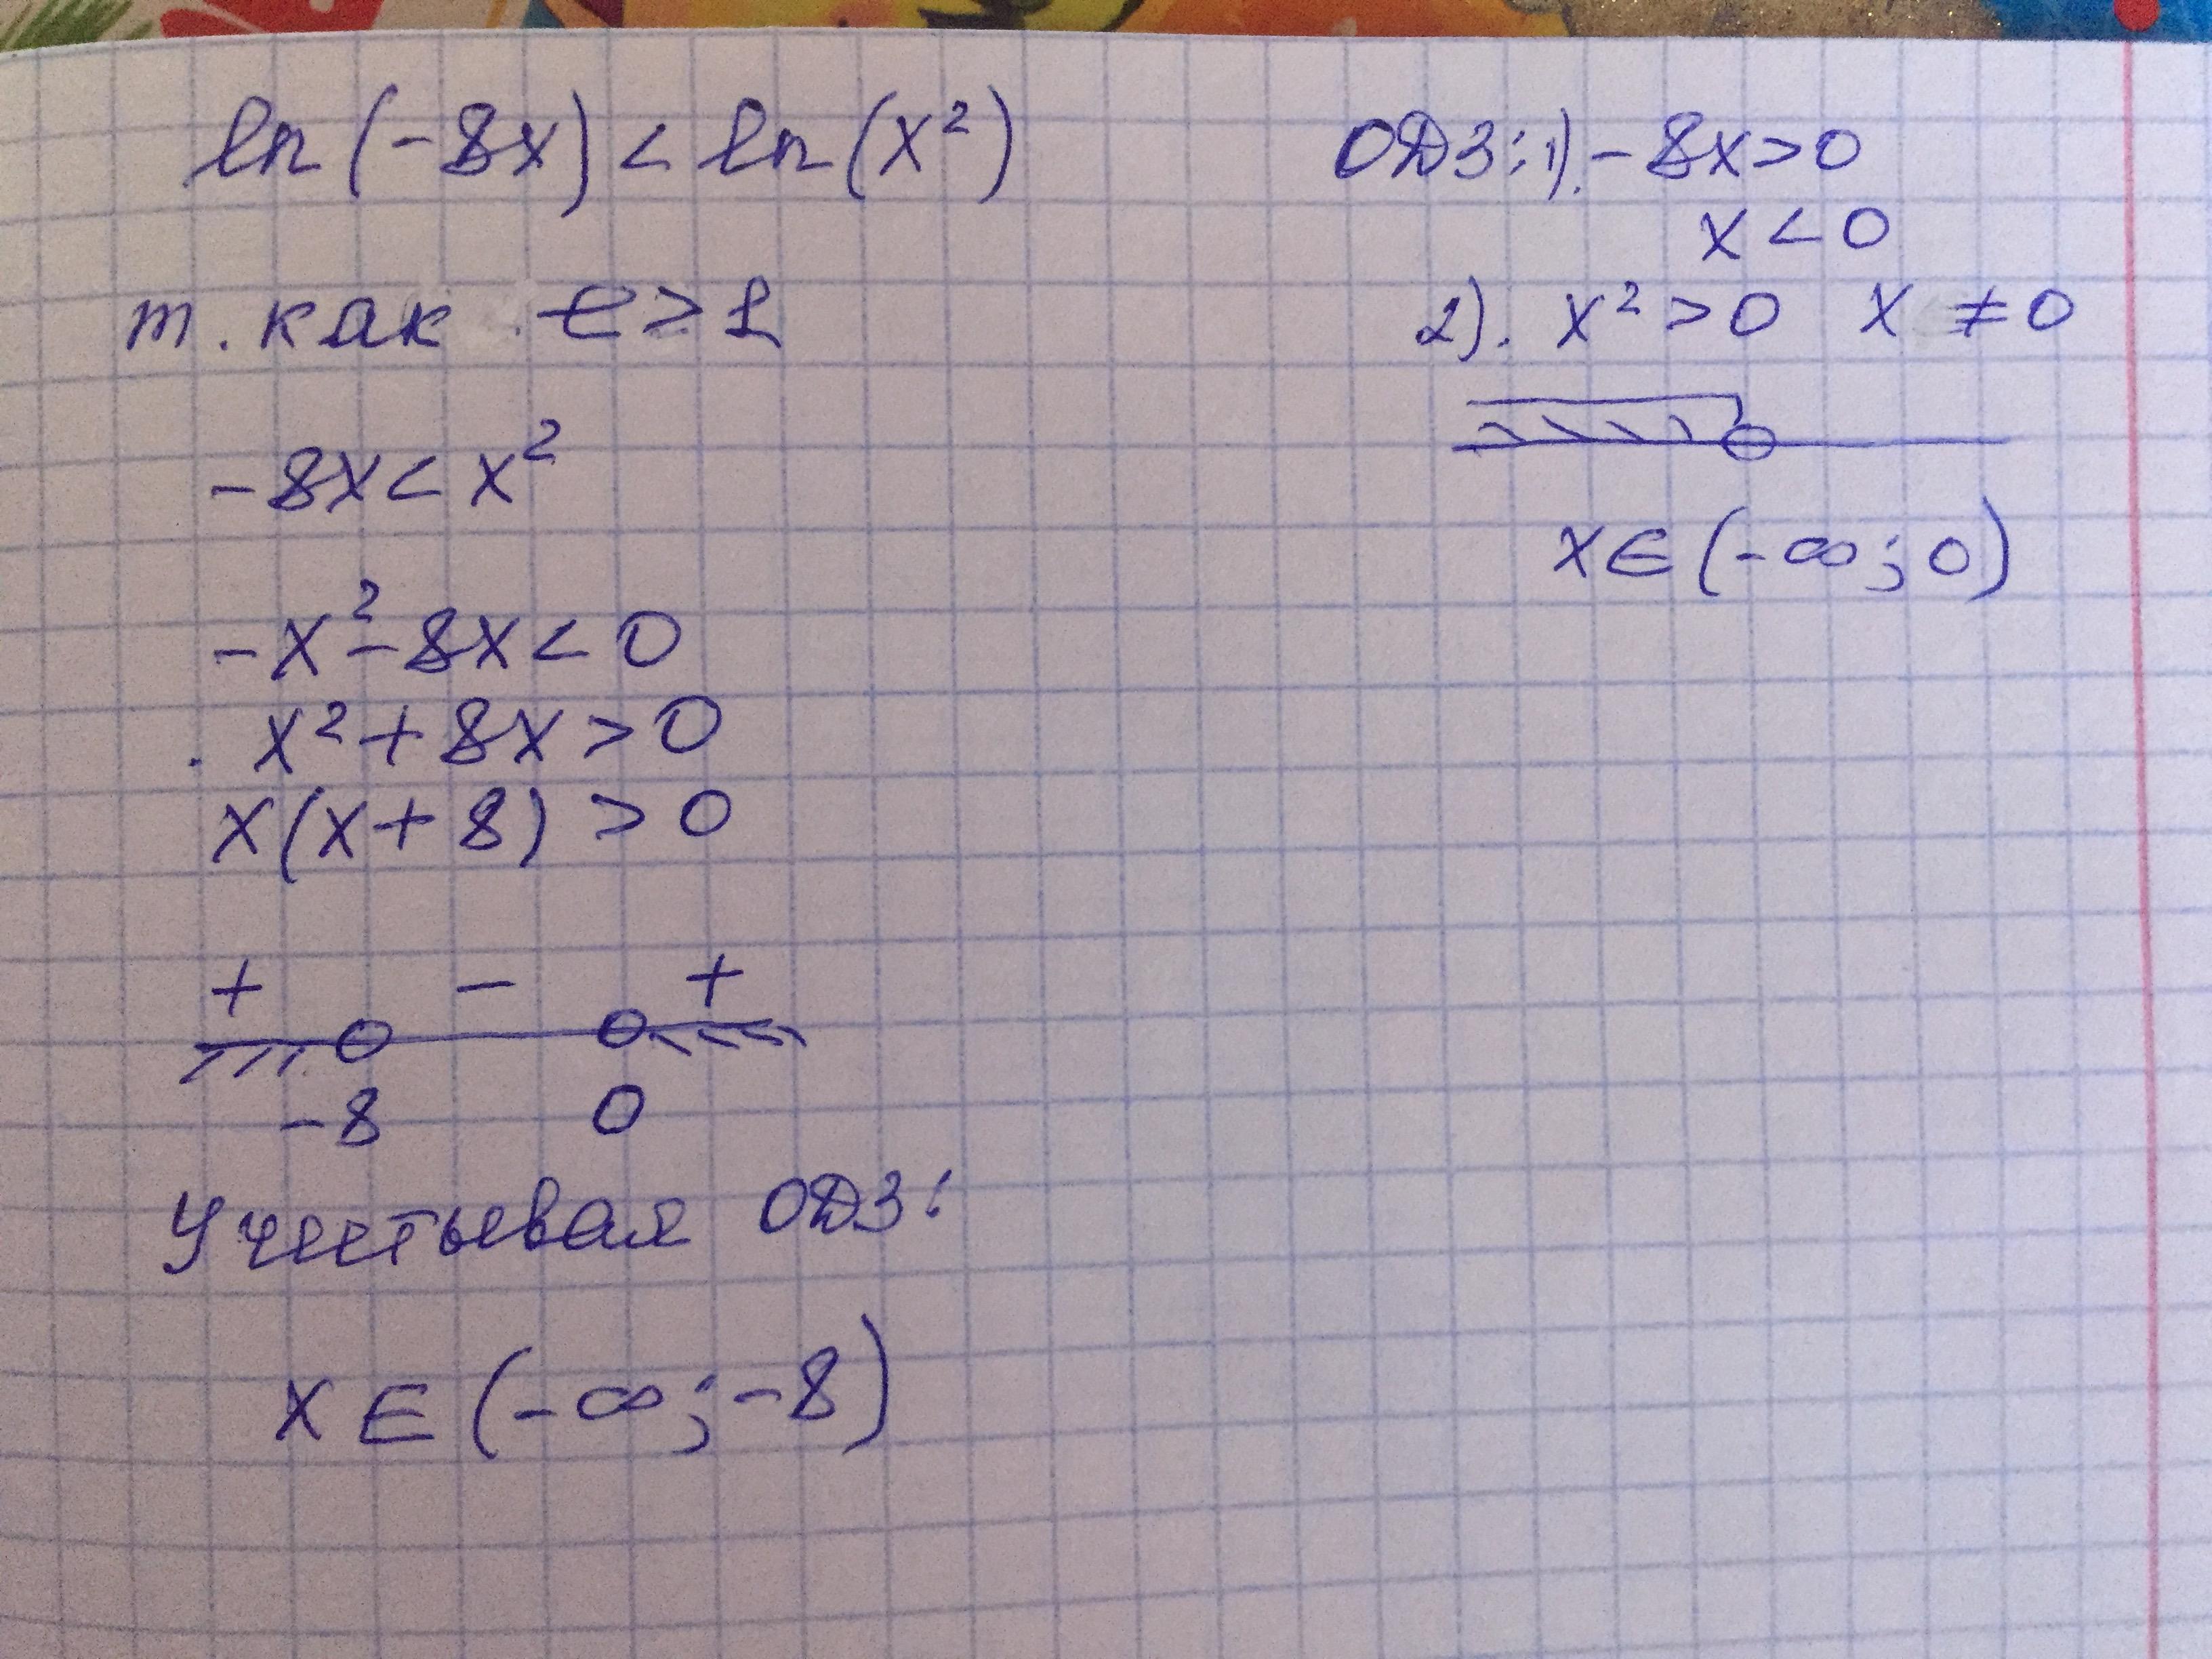 ln(-8x) < ln(x²)
т. как e > 1
-8x < x²
-x² - 8x < 0
x² + 8x > 0
x(x + 8) > 0
+ - +
-8 0
Учитывая ОДЗ:
x ∈ (-∞; -8)
ОДЗ: 1). -8x > 0
x < 0
2). x² > 0 x ≠ 0
x ∈ (-∞; 0)